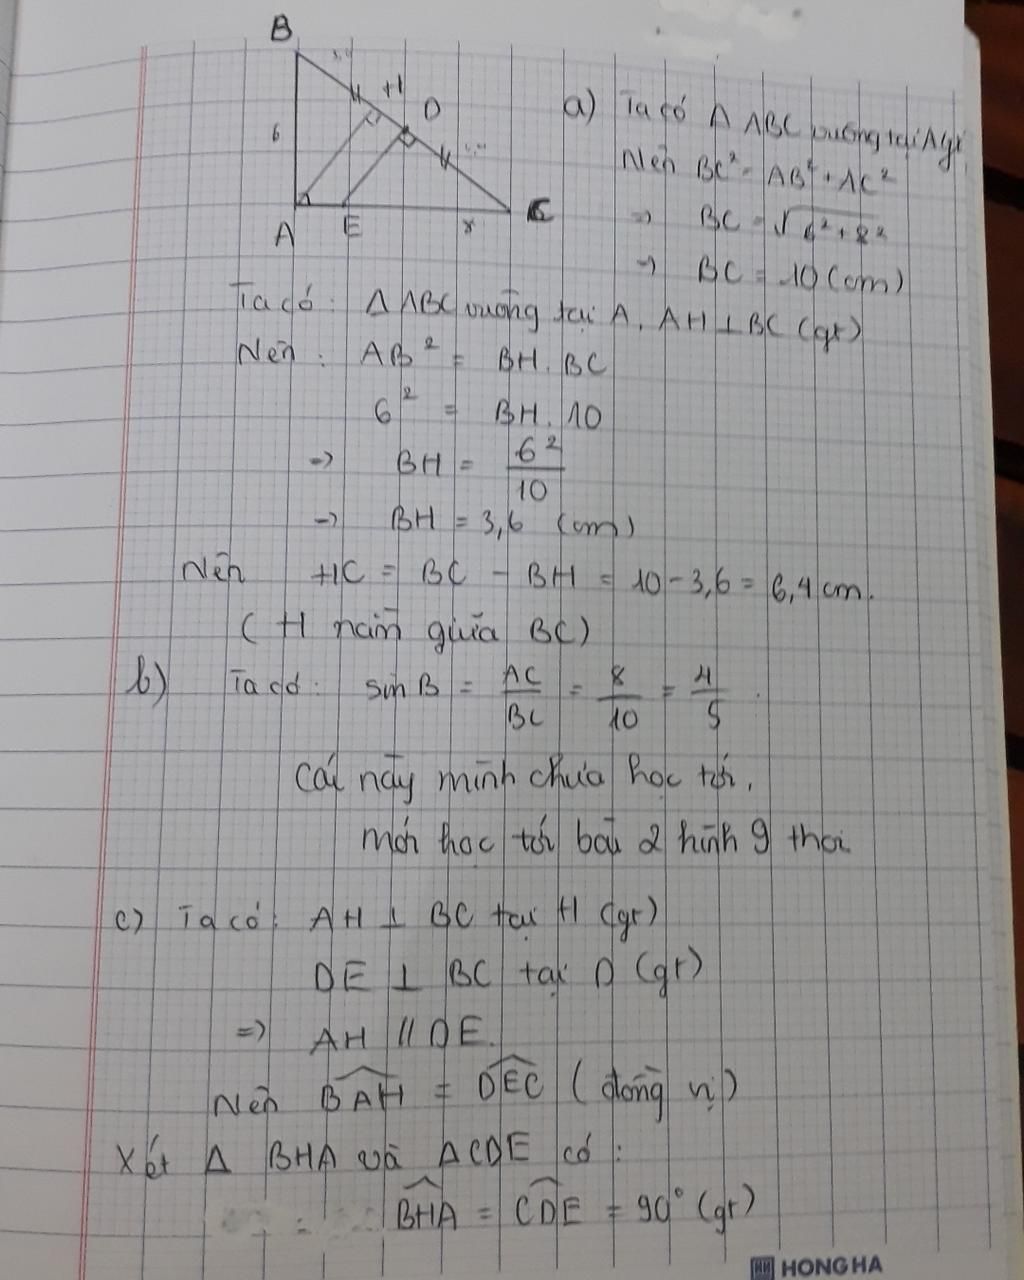 B
+1 D
6
A E x C
a) Ta có Δ ABC vuông tại A gt
Nên BC² = AB² + AC²
=> BC = √6² + 8²
=> BC = 10 (cm)
Ta có: Δ ABC vuông tại A, AH ⊥ BC (gt)
Nên: AB² = BH. BC
6² = BH. 10
=> BH = 6²/10
=> BH = 3,6 (cm)
Nên HC = BC - BH = 10 - 3,6 = 6,4 cm.
( H nằm giữa BC)
b) Ta có: sin B = AC/BC = 8/10 = 4/5.
Cái này mình chưa học tới,
mới học tới bài 2 hình 9 thôi
c) Ta có: AH ⊥ BC tại H (gt)
DE ⊥ BC tại D (gt)
=> AH // DE.
Nên BAH = DEC ( đồng vị)
Xét Δ BHA và ΔCDE có:
BHA = CDE = 90° (gt)
HH HONG HA